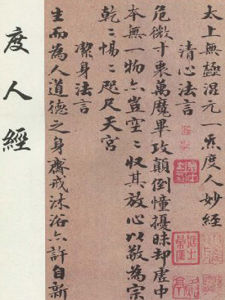 太上無極混元一炁度人妙經
清心法言
危微十乘萬魔畢攻顛倒憧擾昧却虛中
本無一物六豈空〻收其放心以敬為宗
乾〻惕〻咫尺天宮
潔身法言
生而為人道德之身齋戒沐浴六許自新
度人經